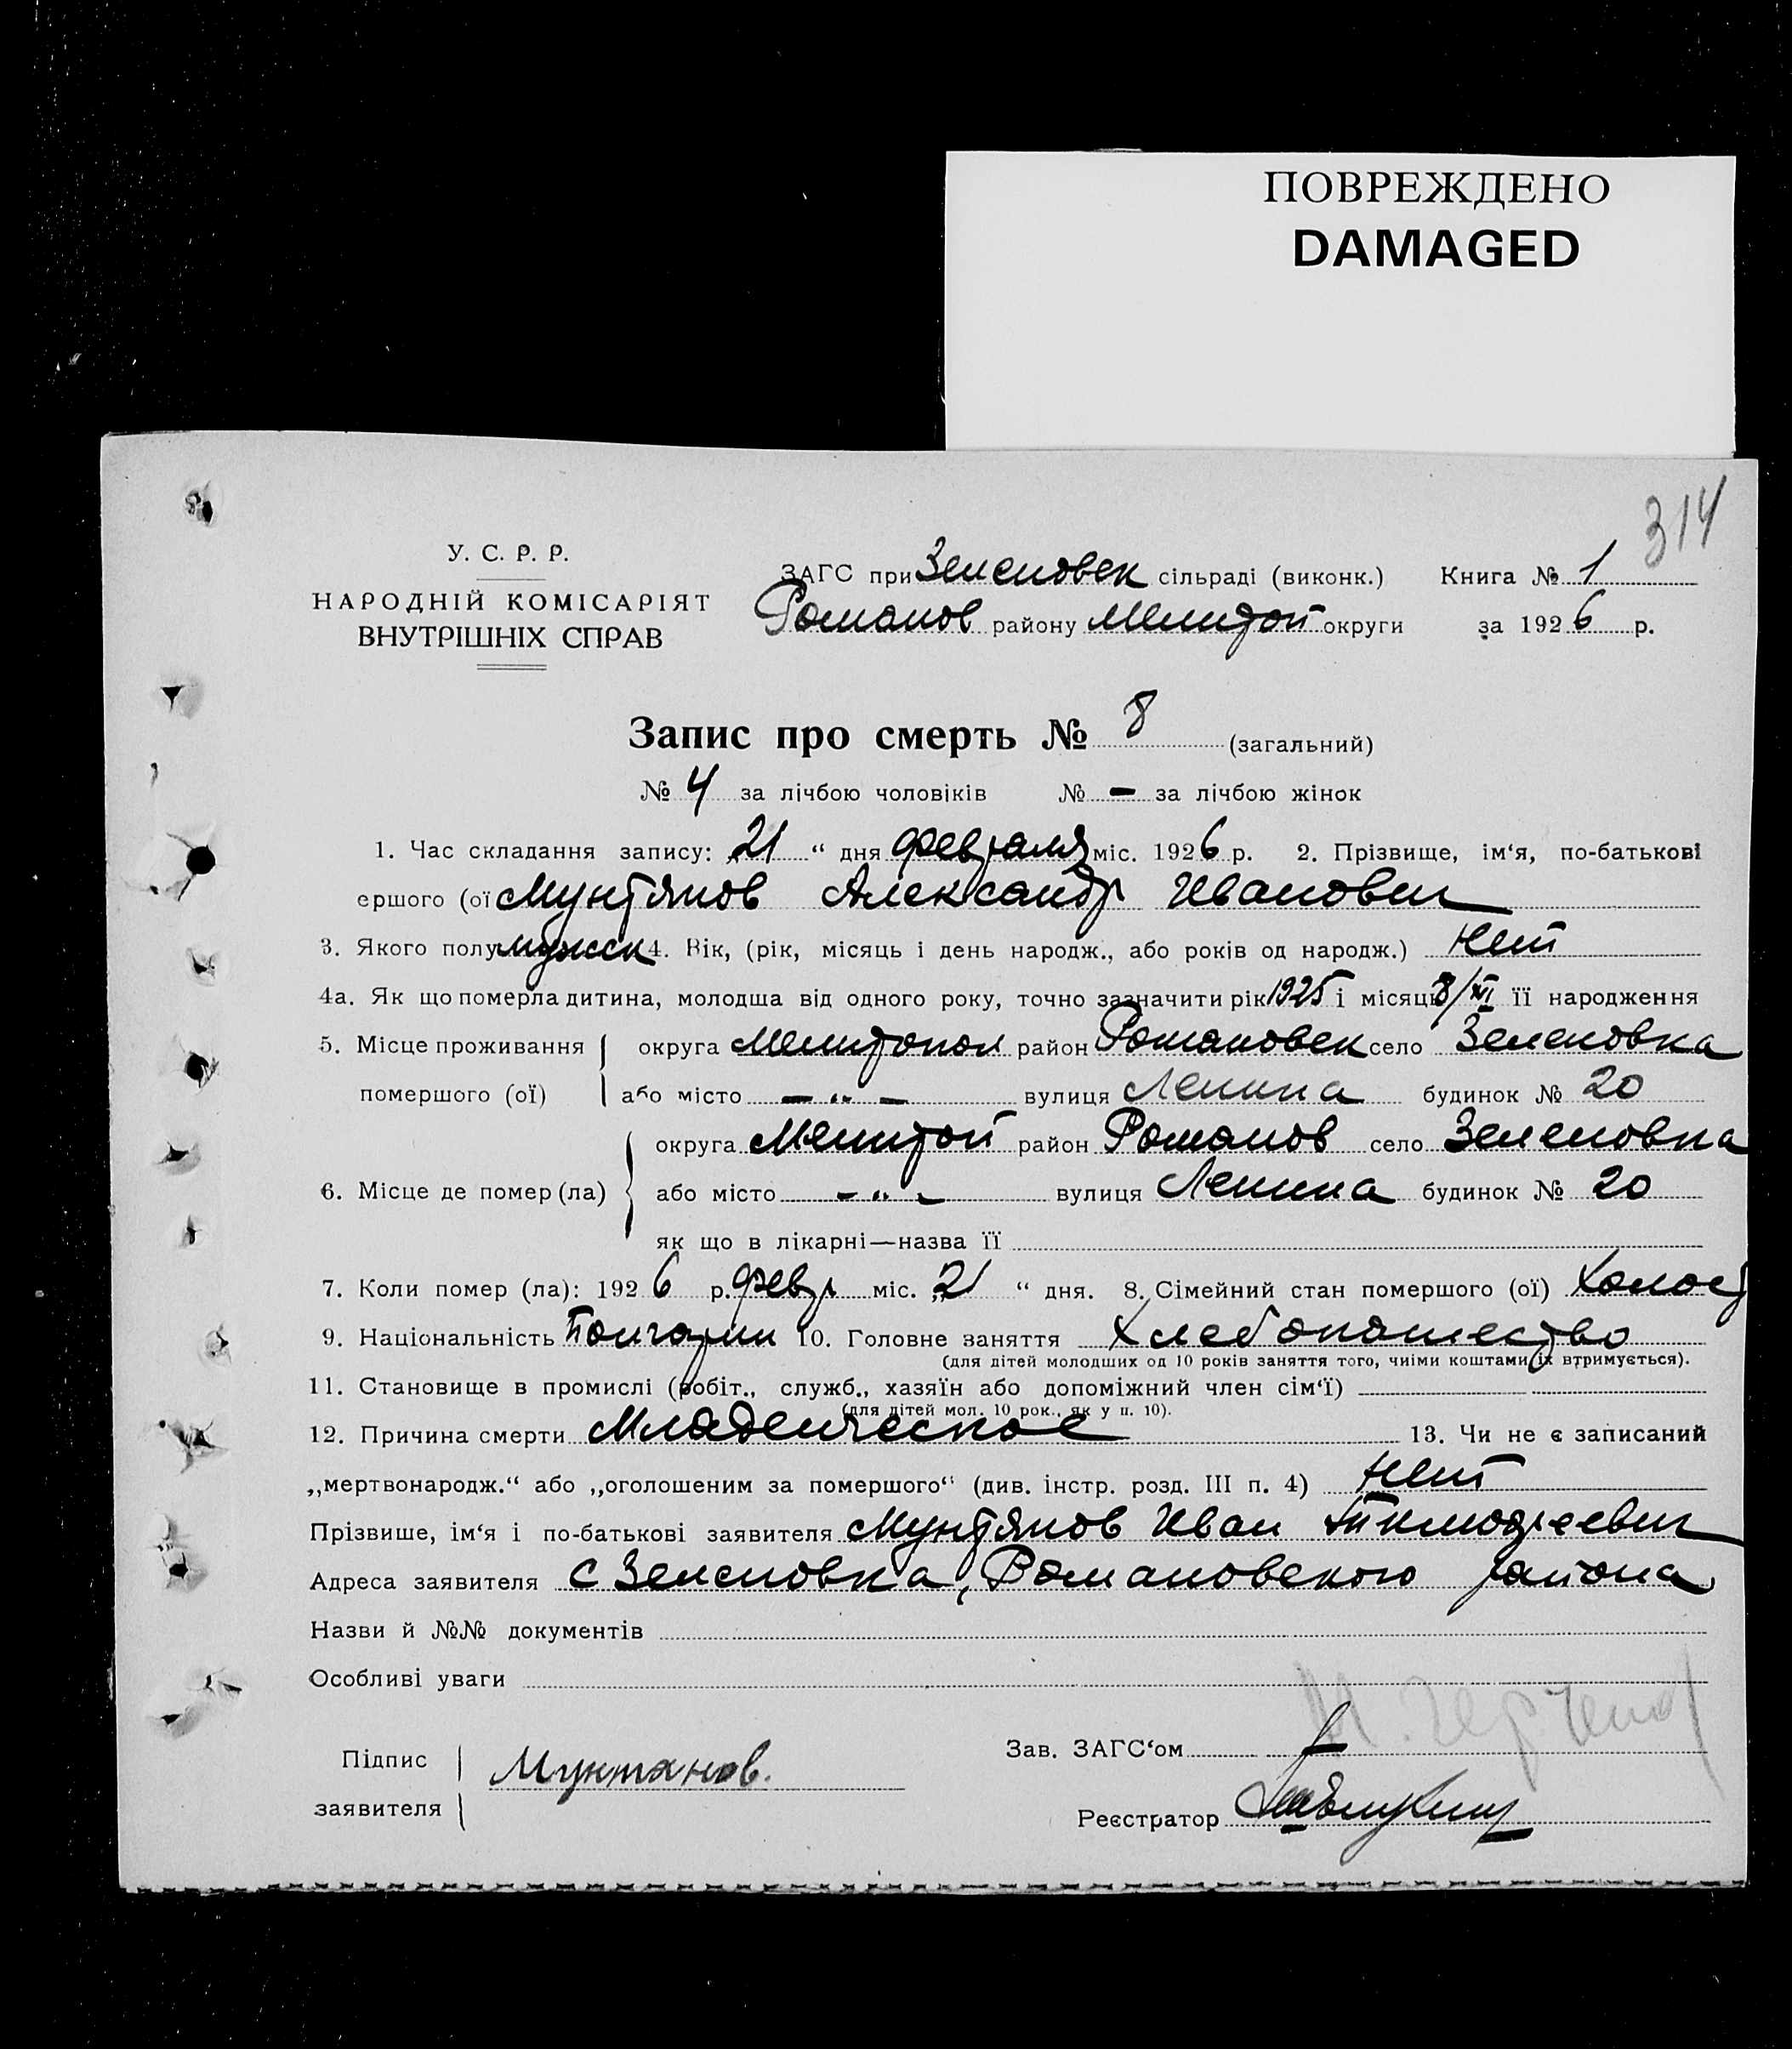 ПОВРЕЖДЕНО
DAMAGED
314
У. С. Р. Р.
НАРОДНІЙ КОМІСАРІЯТ
ВНУТРІШНІХ СПРАВ
ЗАГС при Зеленовск сільраді (виконк.) Книга № 1
Романов району Мелитоп округи за 1926 р.
Запис про смерть № 8 (загальний)
№ 4 за лічбою чоловіків № – за лічбою жінок
1. Час складання запису: „21“ дня февраля міс. 1926 р. 2. Прізвище, ім‘я, по-батькові
ершого (ої Мунтянов Александр Иванович
3. Якого полу мужск 4. Вік, (рік, місяць і день народж., або років од народж.) Нет
4а. Як що померла дитина, молодша від одного року, точно зазначити рік 1925 і місяць 8/XI її народження
5. Місце проживання округа Мелитопол район Романовск село Зеленовка
помершого (ої) або місто – „ – вулиця Ленина будинок № 20
округа Мелитоп район Романов село Зеленовка
6. Місце де помер (ла) або місто – „ – вулиця Ленина будинок № 20
як що в лікарні—назва її
7. Коли помер (ла): 1926 р. февр міс. „21“ дня. 8. Сімейний стан помершого (ої) Холост
9. Національність 10. Головне заняття Хлебопашество
(для дітей молодших од 10 років заняття того, чиїми коштами їх втримується).
11. Становище в промислі (робіт., служб., хазяїн або допоміжний член сім‘ї)
(для дітей мол. 10 рок., як у п. 10).
12. Причина смерти Младенческое 13. Чи не є записаний
„мертвонародж.“ або „оголошеним за помершого“ (див. інстр. розд. III п. 4) Нет
Прізвише, ім‘я і по-батькові заявителя Мунтянов Иван Тимофеевич
Адреса заявителя с Зеленовка, Романовского района
Назви й №№ документів
Особливі уваги
Зав. ЗАГС‘ом
Підпис
заявителя Мунтянов.
Реєстратор